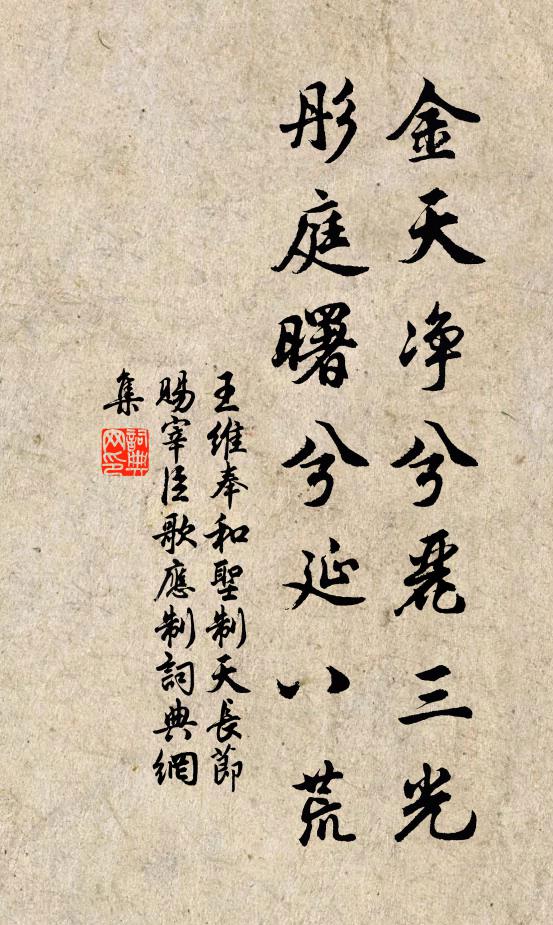 金天净兮麗三光
彤庭曙兮延八荒
王維奉和聖制天長節
賜宰臣歌應制詞典網
集
詞典
网印